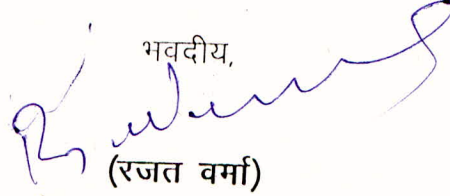 भवदीय,
(रजत वर्मा)